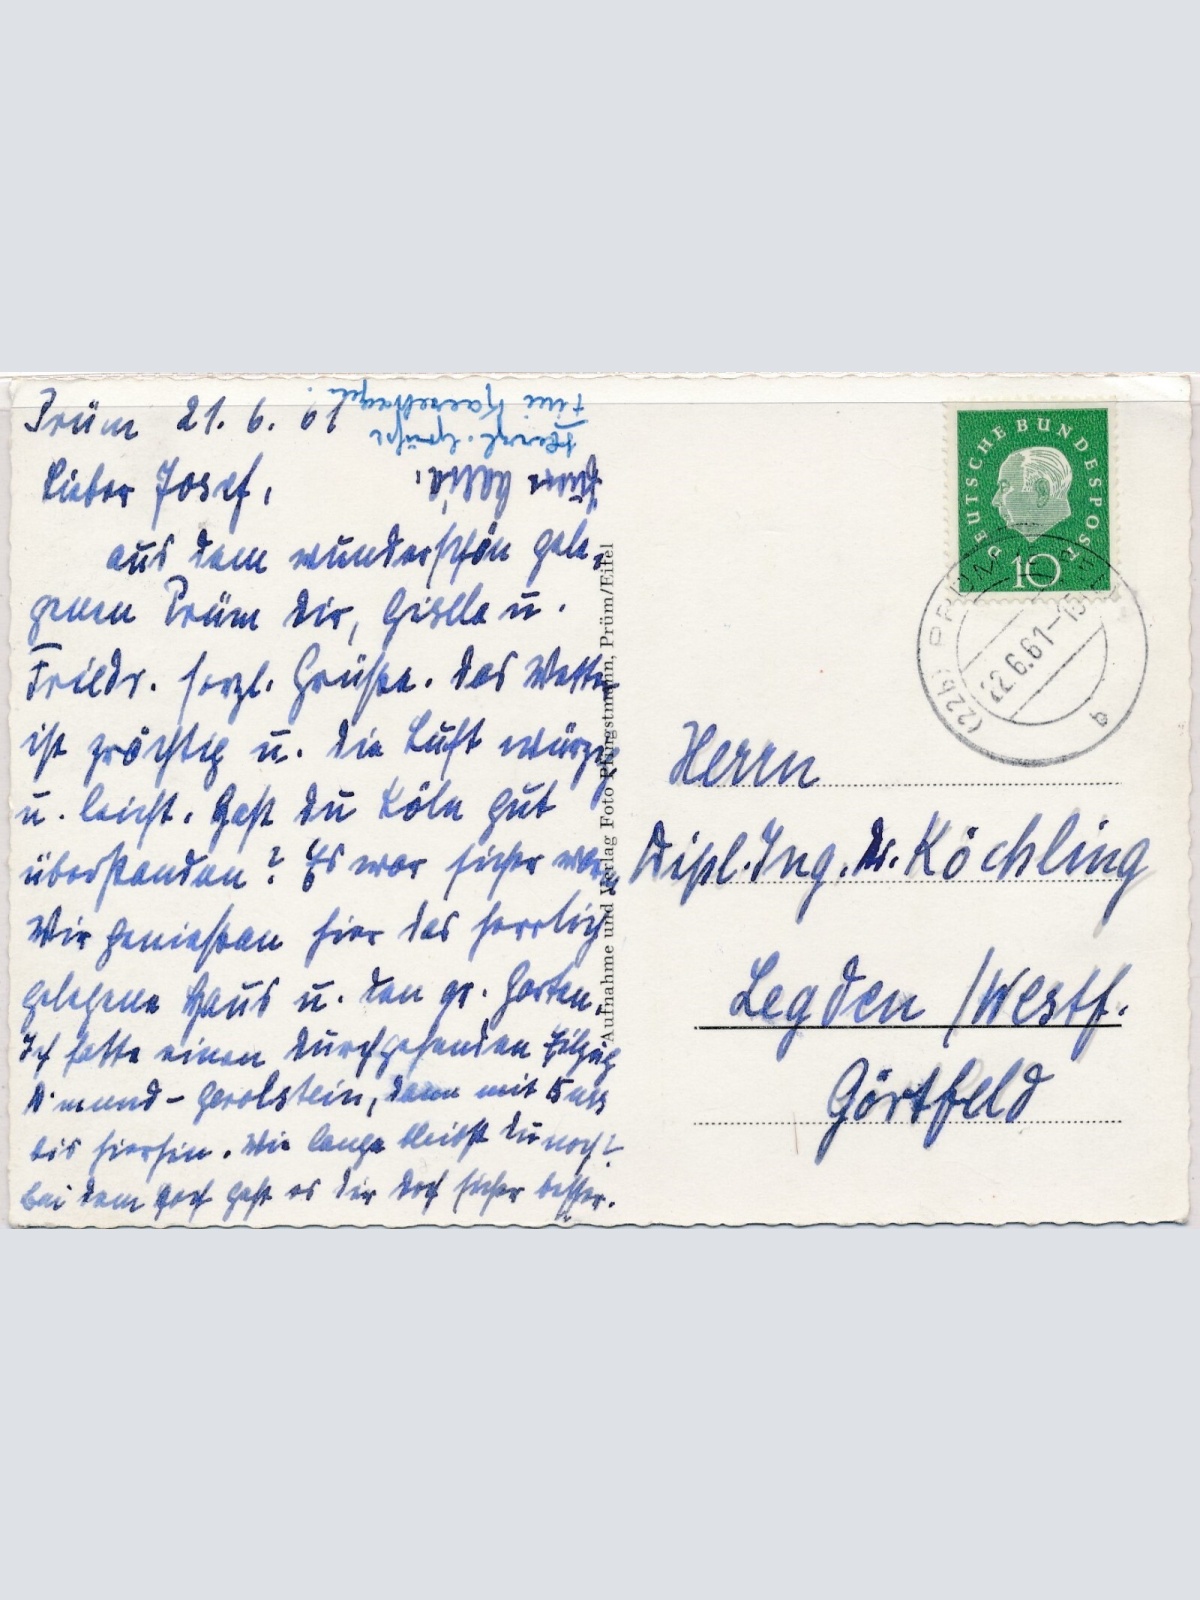 Prüm 21. 6. 61
Lieber Josef,
aus dem wunderschön gele-
genen Prüm Dir, Gisela u.
Friedr. herzl. Grüße. Das Wetter
ist prächtig u. die Luft würzig
u. leicht. Hast Du Köln gut
überstanden? Es war sicher warm
Wir genießen hier das herrlich
gelegene Haus u. den gr. Garten.
Ich hatte einen durchgehenden Eilzug
D'mund - Gerolstein, dann mit Bus
bis hierhin. Wie lange bleibst Du noch?
Bei dem geht es Dir doch sicher besser.
Herzl. Grüße
DEUTSCHE BUNDESPOST
10
(22b) PRÜM
22.6.61-15
b
Aufnahme und Verlag Foto Pfingstmann, Prüm/Eifel
Herrn
Dipl.-Ing. Dr. Köchling
Legden /Westf.
Görtfeld